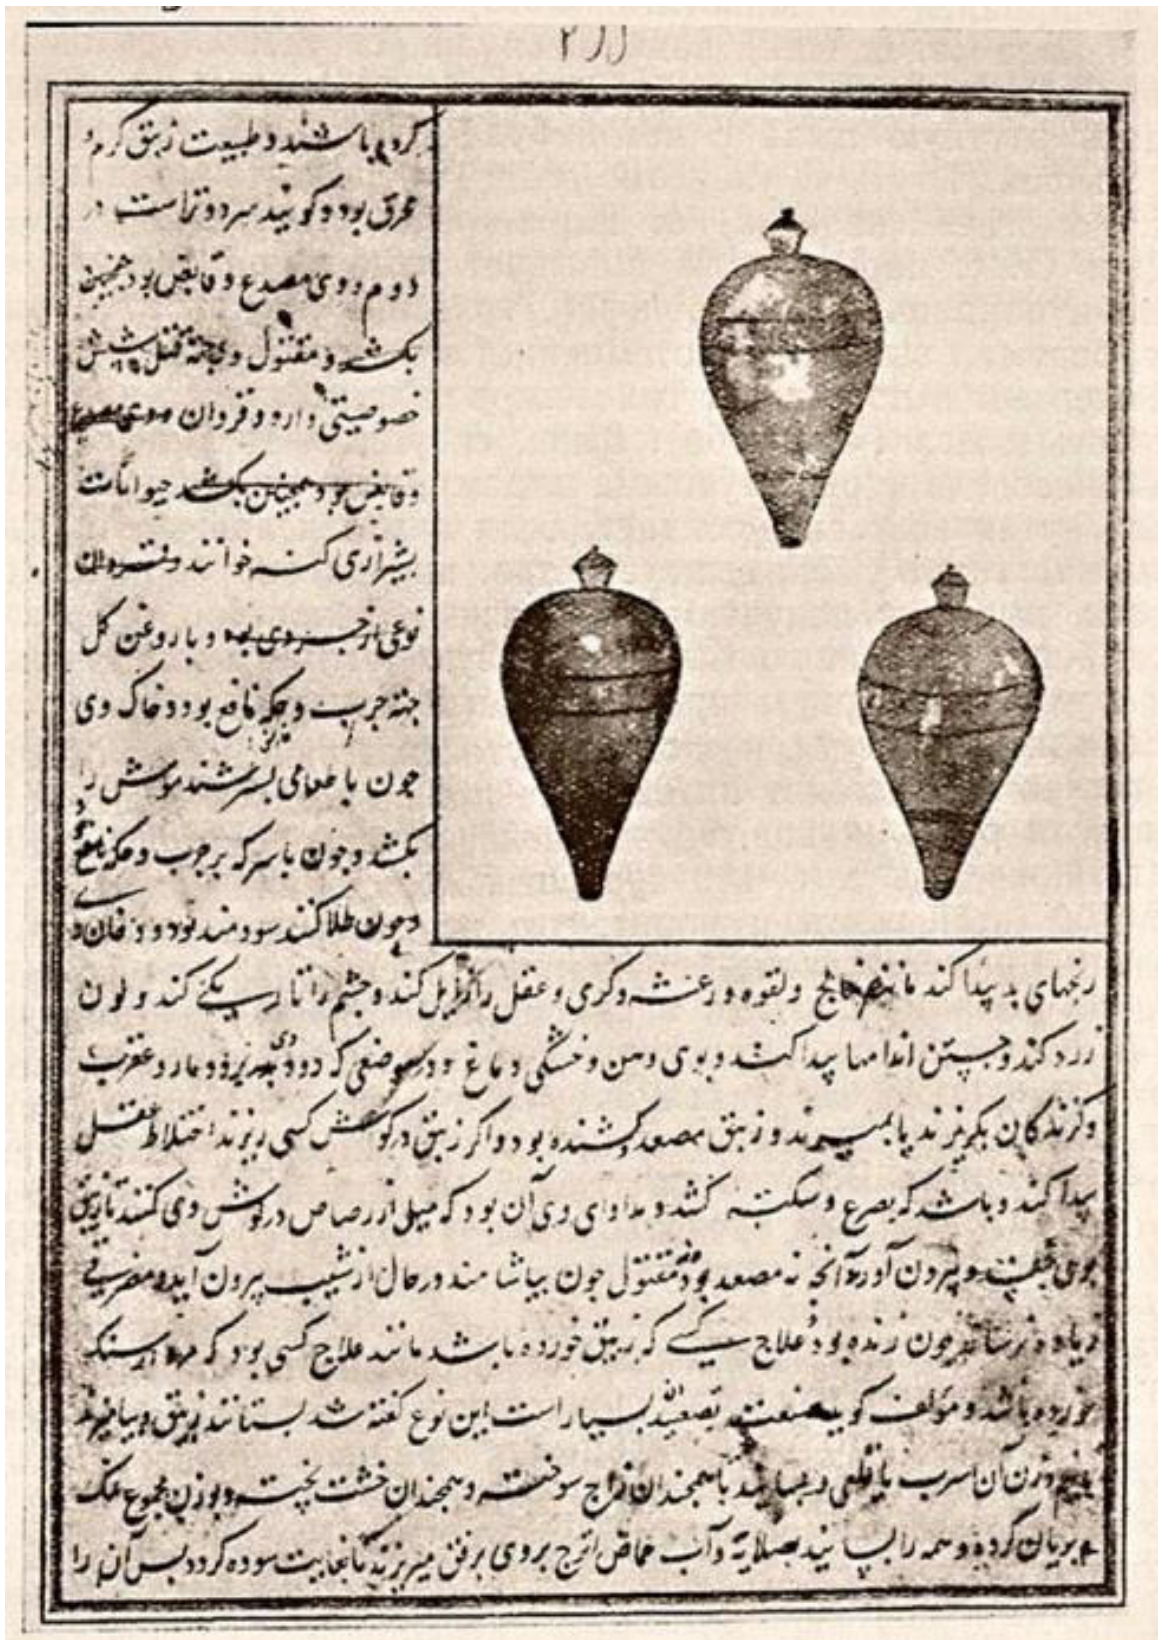 ۲۱۱
کرده باشند و طبیعت زیبق کرم و
محرق بود و کویند سرد و تر است در
دوم و وی مصدع و قابض بود همجنین
بکشد و مقتول وی جهة قتل شپش
خصوصیتی دارد و قردان
و قابض بود همجنین بکشد حیوانات
بشیرازی کنه خوانند و قردان
نوعی از وی بود و با روغن کل
جهة جرب و حکه نافع بود و خاک وی
جون با طعامی بسرشند موش را
بکشد و جون با سرکه بر جرب و حکه نافع
و جون طلا کنند سودمند بود و دخان وی
رنجهای بد پیدا کند مانند فالج و لقوه و رعشه و کری و عقل را زایل کند و چشم را تاریک کند و لون
زرد کند و جستن اندامها پیدا کند و بوی دهن و خشکی دماغ و در موضعی که دود وی مار و عقرب
و کزندکان بکریزند یا بمیرند و زیبق مصعد کشنده بود و اکر زیبق در کوش کسی ریزند اختلاط عقل
پیدا کند و باشد که بصرع و سکته کشد و مداوای وی آن بود که میل از رصاص در کوش وی کنند تا زیبق
بوی و بیرون آورد و آنجه نه مصعد بود و نه مقتول جون بیاشامند در حال از شیب بیرون آید و مضرتی
زیاده نرساند جون زنده بود و علاج کسی که زیبق خورده باشد مانند علاج کسی بود که سنک
خورده باشد و مؤلف کوید صنعت تصعید بسیار است این نوع کفته شد بستانند زیبق و بیامیزند
وزن آن اسرب یا قلعی با همجندان زاج سوخته و همجندان خشت پخته و بوزن مجموع نمک
بریان کرده و همه را بسایند بصلایه و آب حماض اترج بروی برفق میریزند تا بغایت سوده کردد پس آن را